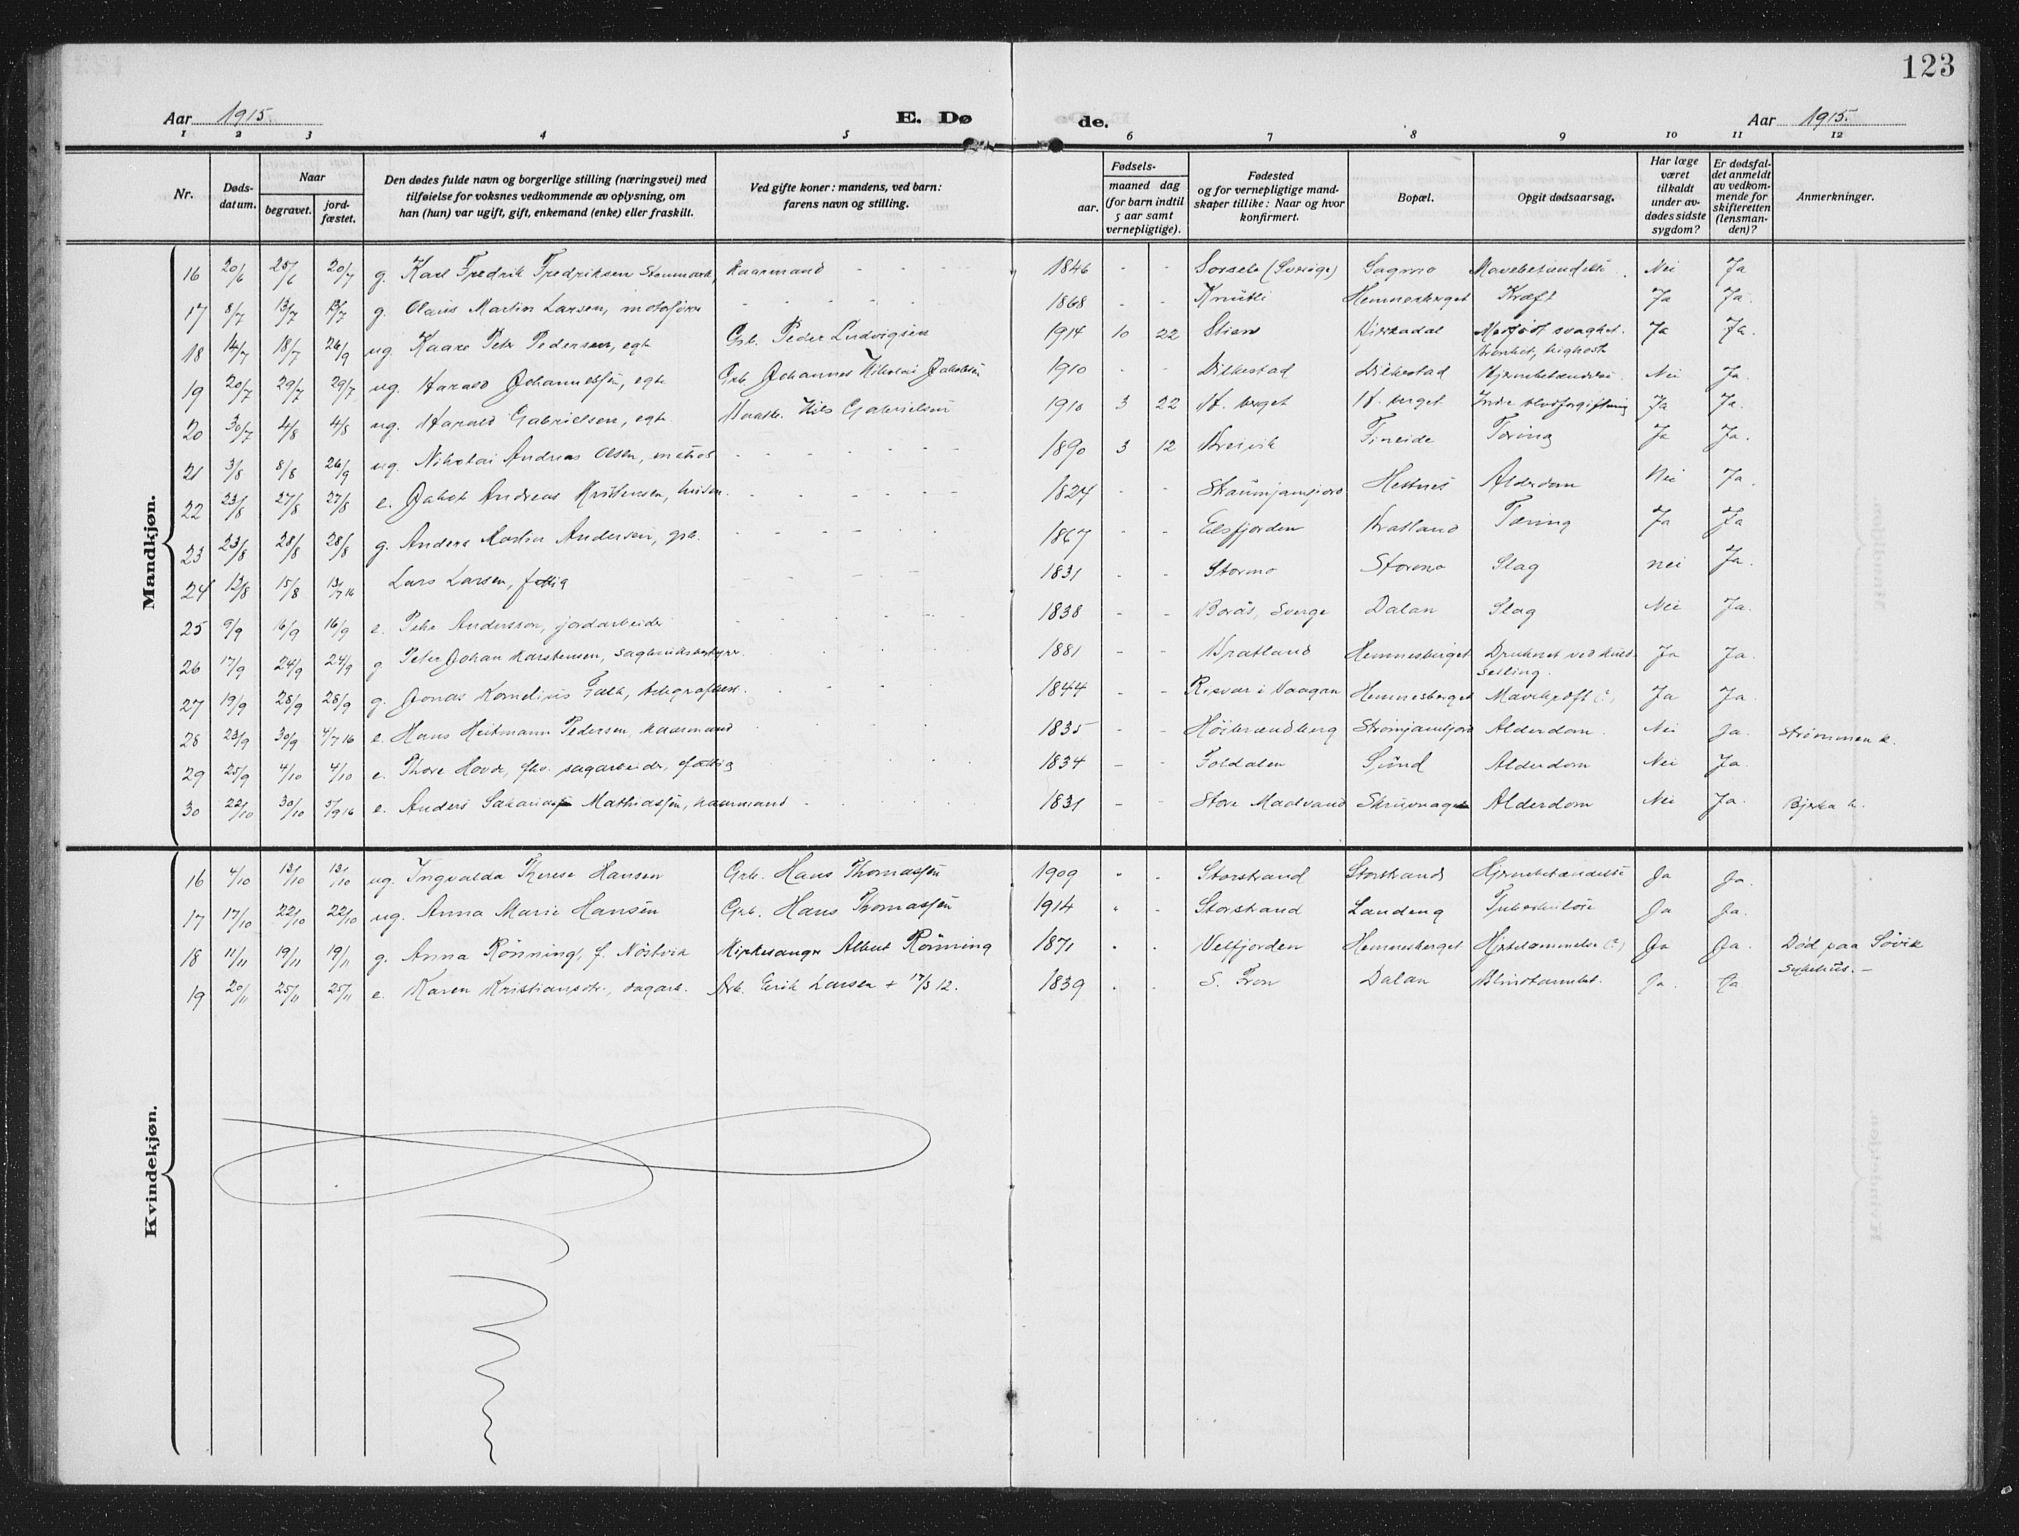 123
Aar 1915. E. Dø de. Aar 1915.
1 2 3 4 5 6 7 8 9 10 11 12
Nr. Døds-datum. Naar begravet. jord-fæstet. Den dødes fulde navn og borgerlige stilling (næringsvei) med tilføielse for voksnes vedkommende av oplysning, om han (hun) var ugift, gift, enkemand (enke) eller fraskilt. Ved gifte koner: mandens, ved barn: farens navn og stilling. Fødsels- aar. maaned dag (for barn indtil 5 aar samt vernepligtige). Fødested og for vernepligtige mand-skaper tillike: Naar og hvor konfirmert. Bopæl. Opgit dødsaarsag. Har læge været tilkaldt under av-dødes sidste sygdom? Er dødsfal-det anmeldt av vedkom-mende for skifteretten (lensman-den)? Anmerkninger.
Mandkjøn.
16 20/6 25/6 20/7 g. Karl Fredrik Fredriksen Stenmark, kaarmand - - - - 1846 - - Sorsele (Sverige) Sagmo Mavebetændelse. Nei Ja
17 8/7 13/7 13/7 g. Olaus Martin Larsen, motorfører - - - - - 1868 - - Hemnesberget Kræft Ja Ja.
18 14/7 18/7 26/9 ug. Kaare Petr Pedersen, egte Grb. Peder Ludvigsen 1914 10 22 Stien Medfødt svaghet. Ja Ja.
Bronkit, kighoste
19 20/7 29/7 29/7 ug. Harald Johannessen, egte Grb. Johannes Nikolai Jakobsen 1910 - - Dilkestad Dilkestad Hjernebetændelse. Nei Ja.
20 30/7 4/8 4/8 ug. Harald Gabrielsen, egte Nils Gabrielsen 1910 3 22 H. berget H. berget Indre blodforgiftning Ja Ja.
21 3/8 8/8 26/9 ug. Nikolai Andreas Olsen, matros - - - - - 1890 3 12 Breivik Fineide Tæring Ja Ja.
22 23/8 27/8 27/8 e. Jakob Andreas Kristensen, - - - - 1824 - - Hellnes Alderdom Nei Ja.
23 23/8 28/8 28/8 g. Anders Martin Andersen, grb. - - - - 1867 - - Elsfjorden Bratland Tæring Ja Ja
24 13/8 15/8 13/7 16 Lars Larsen, fattig - - - - 1831 - - Stormo Stormo Slag nei Ja.
25 9/9 16/9 16/9 e. Petr Andersson, jordarbeider - - - - 1838 - - Borås, Sverge Dalan Slag Nei Ja.
26 17/9 24/9 24/9 g Peter Johan Karstensen, sagbruksbestyrer. - - - - 1881 - - Bratland Hemnesberget Druknet ved kuld- Ja Ja.
seiling.
27 19/9 28/9 28/9 g. Jonas Kornelius Falk, - - - - 1844 - - Risvær i Vaagan Hemnesberget Mavekræft (?) Ja Ja.
28 23/9 30/9 4/7 16 e. Hans Heitmann Pedersen, kaarmand - - - - 1835 - - Strømjamfjord Alderdom. Nei Ja. Strømmen k.
29 25/9 4/10 4/10 e. Thore Hovde, fhv. sagarbeider, fattig - - - - 1834 - - Foldalen Sund Alderdom Nei Ja.
30 22/10 30/10 5/9 16 e. Anders Sakarias Mathiassen, kaarmand - - - - 1831 - - Store Maalvand Alderdom Nei Ja. Bjerka k.
Kvindekjøn.
16 4/10 13/10 13/10 ug. Ingvalda Therese Hansen Grb. Hans Thomassen 1909 - - Storstrand Storstrand Hjernebetændelse Ja Ja.
17 17/10 22/10 22/10 ug. Anna Marie Hansen Grb. Hans Thomassen 1914 - - Storstrand Landeng Tuberkulose Ja Ja.
18 11/11 19/11 19/11 g. Anna Rønning, f. Nøstvik Kirkesanger Albert Rønning 1871 - - Velfjorden Hemnesberget Hjertelammelse (?) Ja Ja. Død paa Søvik
sykehus. —
19 20/11 25/11 25/11 e. Karen Kristiansdtr., dagarb. Arb. Erik Larsen + 17/3 12. 1839 - - S. Fron Dalan Blindtarmbet. Ja. Ja